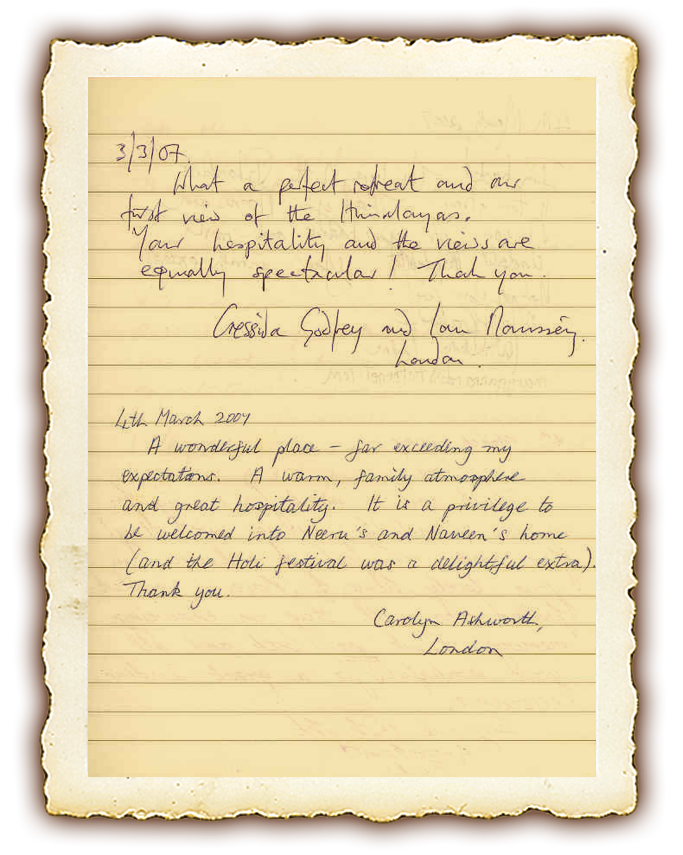 3/3/07.
What a perfect retreat and our
first view of the Himalayas.
Your hospitality and the views are
equally spectacular! Thank you.
Cressida Godfrey and
London.
4th March 2007
A wonderful place - far exceeding my
expectations. A warm, family atmosphere
and great hospitality. It is a privilege to
be welcomed into Neeru's and Naveen's home
(and the Holi festival was a delightful extra).
Thank you.
Carolyn Ashworth,
London